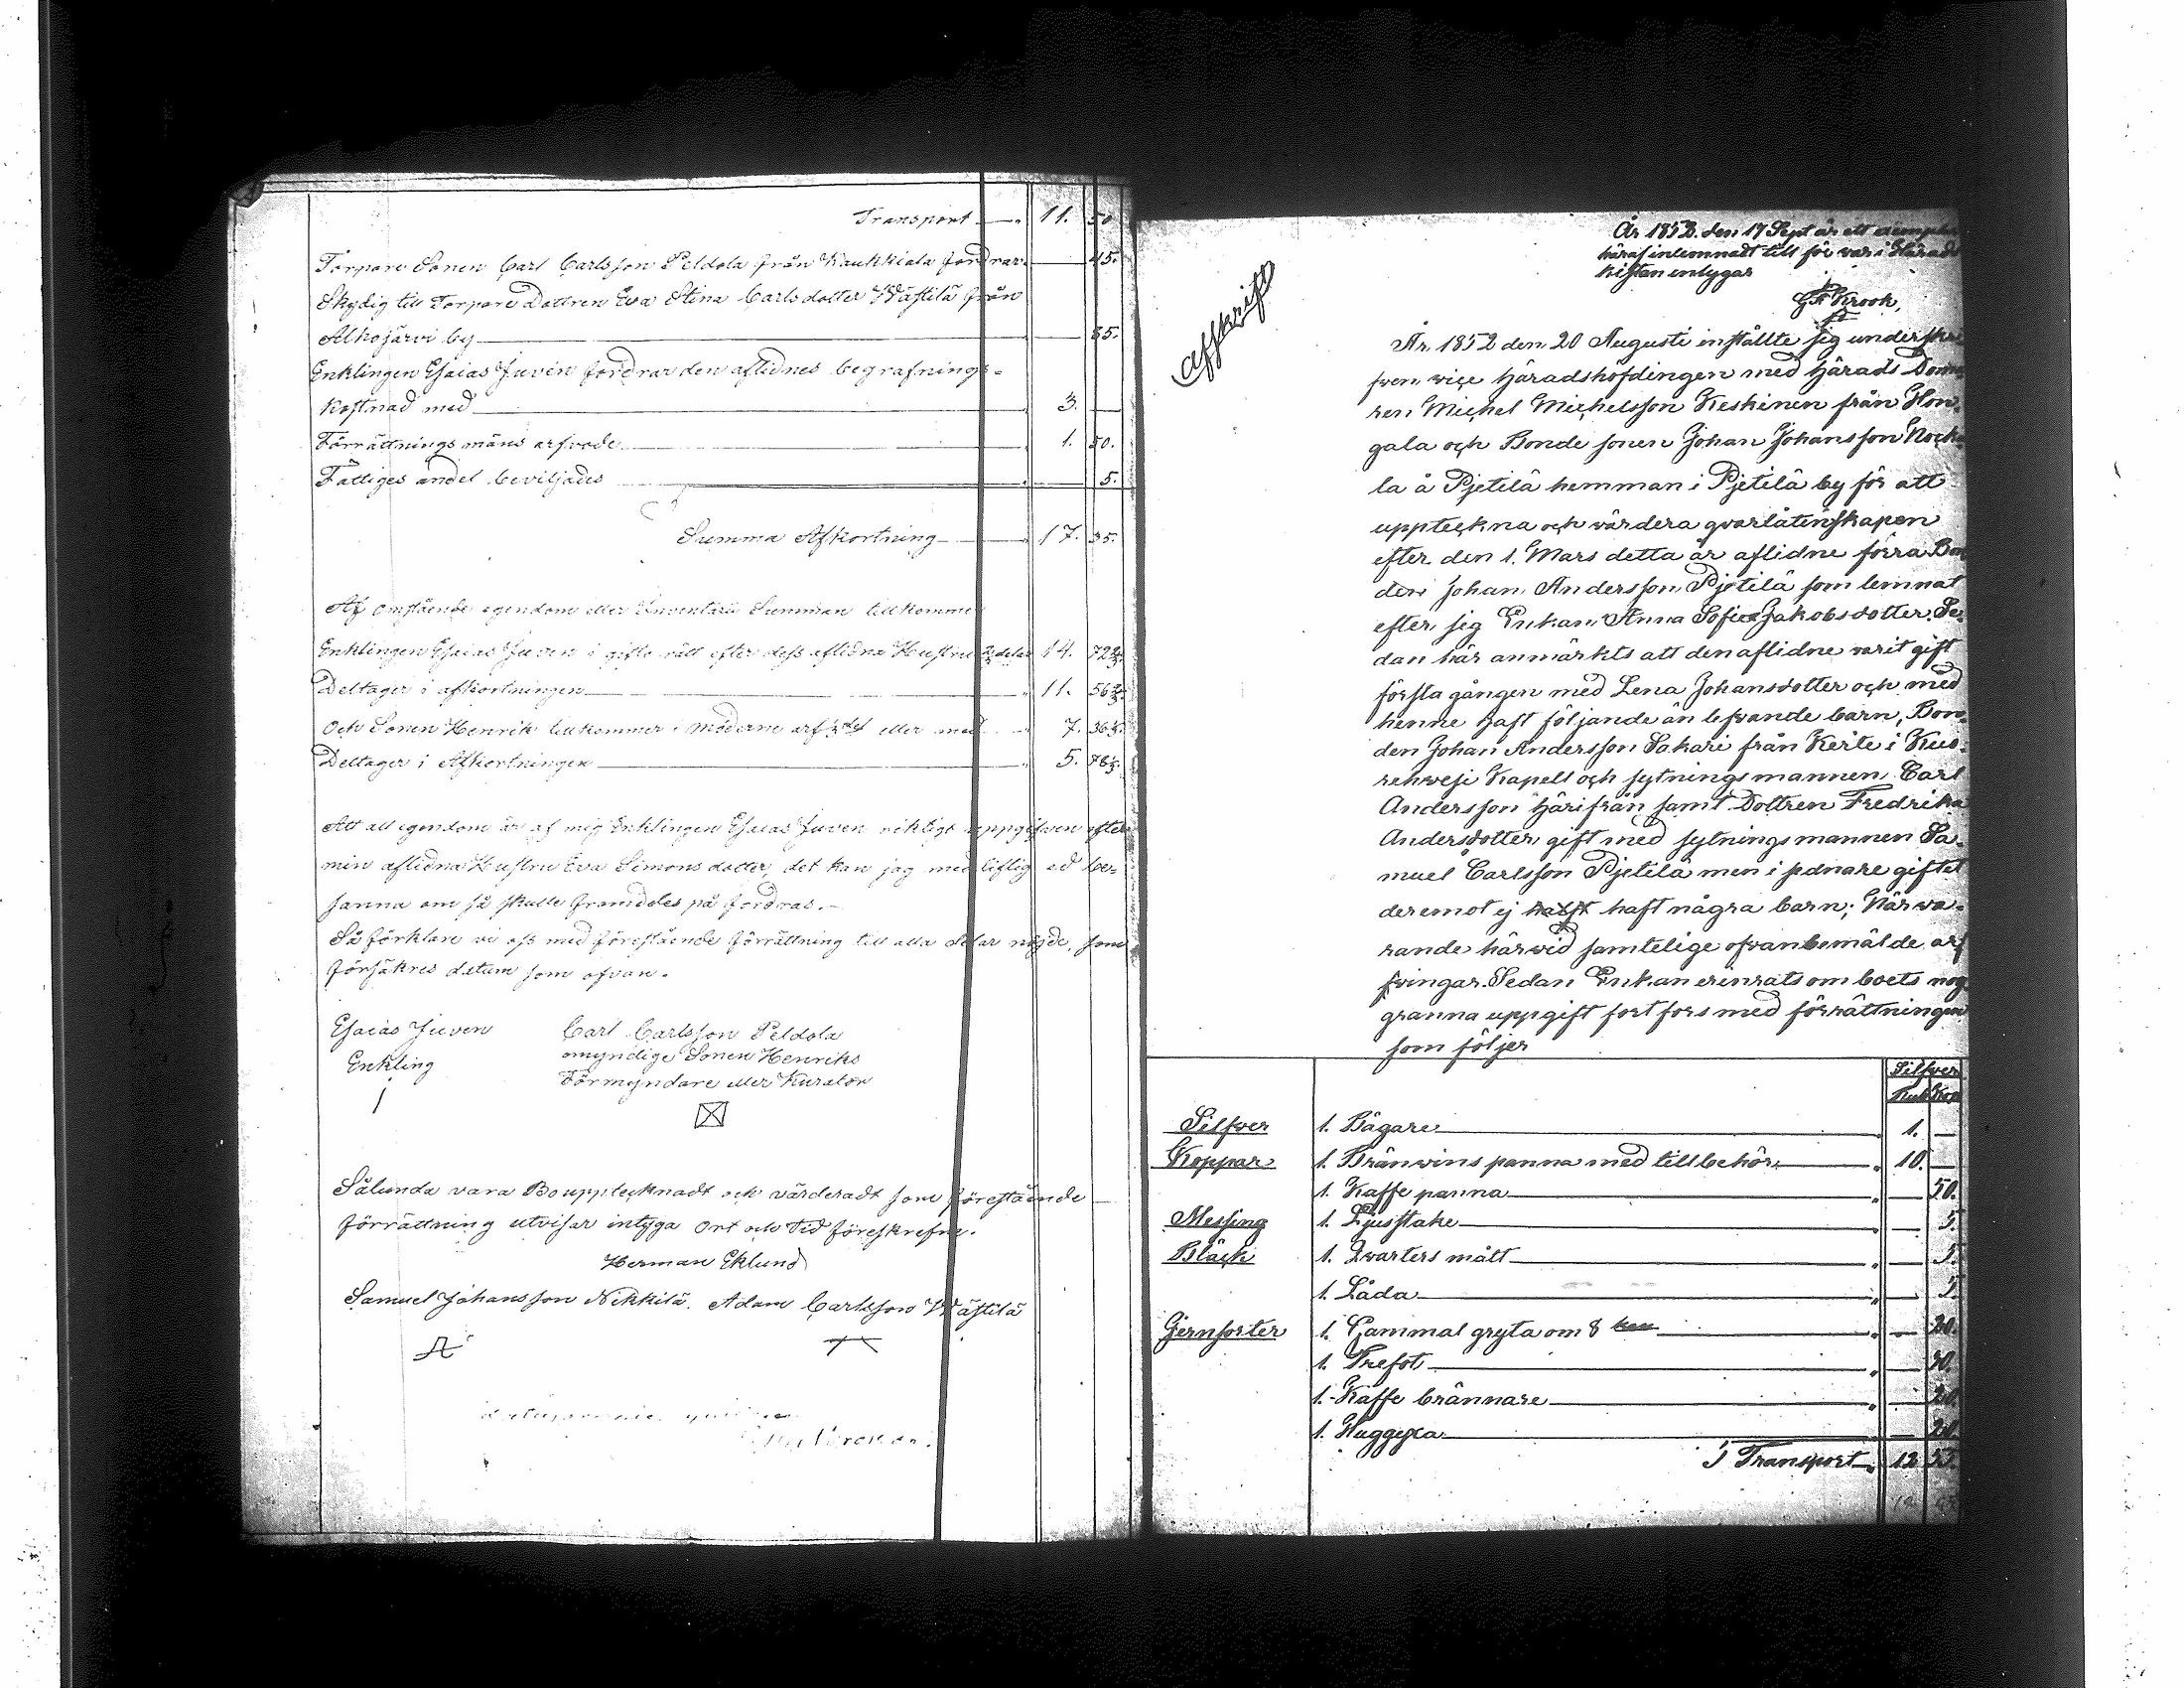 Transport 11. 50
Torpare Sonen Carl Carlsson Peldola från Kaukkiala fordrar 45.
Skydig till Torpare Dottren Eva Stina Carlsdotter Wästilä från
Alkojärvi by 85.
Enklingen Esaias Juven fordrar den aflidnes begrafnings-
kostnad med 3. —
Förrättningsmäns arfvode 1. 50.
Fattiges andel beviljades 5.
Summa Afkortning 17. 35.
Af omstående egendom eller Inventarii Summan tillkommer
Enklingen Esaias Juven i gifto rätt efter dess aflidna Hustru 2/3 delar 14. 72 2/3.
Deltager i afkortningen 11. 56 2/3.
Och Sonen Henrik tillkommer i Möderne arf 1/3 del eller med 7. 36 1/3.
Deltager i Afkortningen 5. 78 1/3.
Att all egendom är af mig Enklingen Esaias Juven riktigt uppgifven efter
min aflidna Hustru Eva Simons dotter, det kan jag med liflig ed be-
sanna om så skulle framdeles på fordras.-
Så förklare vi oss med förestående förrättning till alla delar nöjde, som
försäkres datum som ofvan.
Esaias Juven Carl Carlsson Peldola
Enkling omyndige Sonen Henriks
Förmyndare eller Kurator
Sålunda vara Bo upptecknadt och värderadt som förestående
förrättning utvisar intyga Ort och Tid föreskrefne.
Herman Eklund
Samuel Johansson Nikkilä. Adam Carlsson Wästilä
Afskrift
År 1852. den 17 Sept är ett exemplar
häraf inlemnadt till för var i Härads
kistan intygar
GF Krook,
År 1852 den 20 Augusti inställte sig underskri
fven vice Häradshöfdingen med Härads Doma
ren Michel Michelsson Keskinen från Hon-
gala och Bonde sonen Johan Johansson Nocka
la å Pjetilä hemman i Pjetilä by för att
uppteckna och värdera qvarlåtenskapen
efter den 1. Mars detta år aflidne förra Bon
den Johan Andersson Pjetilä som lemnat
efter sig Enkan Anna Sofia Jakobsdotter. Se-
dan här anmärkts att den aflidne varit gift
första gången med Lena Johansdotter och med
henne haft följande än lefvande barn, Bon-
den Johan Andersson Sakari från Kerte i Kuo-
rehwesi Kapell och sytningsmannen Carl
Andersson härifrån samt Dottren Fredrika
Andersdotter gift med sytningsmannen Sa-
muel Carlsson Pjetilä men i sednare giftet
deremot ej haft haft några barn; Närva-
rande härwid samtelige ofvanbemälde arf
fvingar. Sedan Enkan erinrats om boets nog
granna uppgift fortfors med förrättningen
som följer
Silfver
Rub. Kop
Silfver 1. Bägare 1. —
Koppar 1. Bränwins panna med tillbehör 10. —
1. Kaffe panna — 50.
Messing 1. Ljusstake — 5.
Bläck 1. Qwarters mått — 5.
1. Låda — 5.
Gjernsorter 1. Gammal gryta om 8 — 20.
1. Trefot —
1. Kaffe brännare — 20.
1. Huggyxa — 20.
I Transport 12 55.